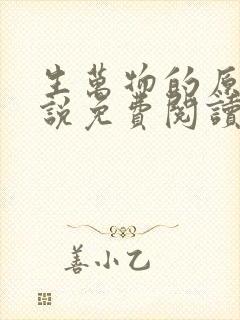 生萬物的原
說免費閱讀
善小乙